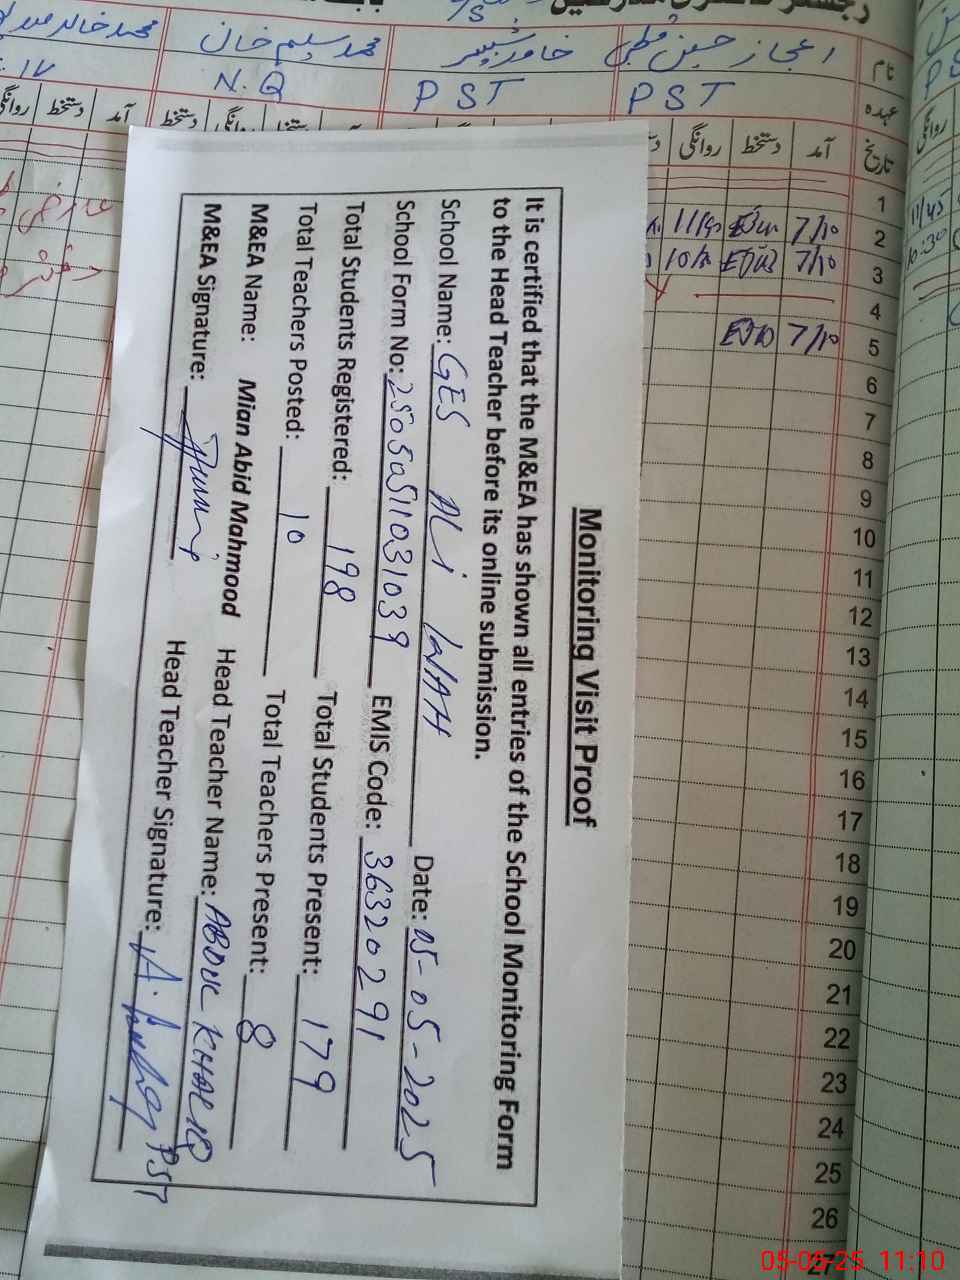 نام
اعجاز حسین
خاور بشیر
محمد سلیم خان
محمد خالد
عہدہ
PST
PST
N.Q
تاریخ
آمد دستخط روانگی
دستخط
آمد دستخط روانگی
روانگی
1
2 7/10 11/40
3 7/10
4
5 7/10
6
7
8
9
10
11
12
13
14
15
16
17
18
19
20
21
22
23
24
25
26
27
11/45
10:30
Monitoring Visit Proof
It is certified that the M&EA has shown all entries of the School Monitoring Form
to the Head Teacher before its online submission.
School Name: GES ALi WAH Date: 05-05-2025
School Form No: 25050511031039 EMIS Code: 36320291
Total Students Registered: 198 Total Students Present: 179
Total Teachers Posted: 10 Total Teachers Present: 8
M&EA Name: Mian Abid Mahmood Head Teacher Name: ABDUL KHALIQ
M&EA Signature: Head Teacher Signature: PST
05-05-25 11:10